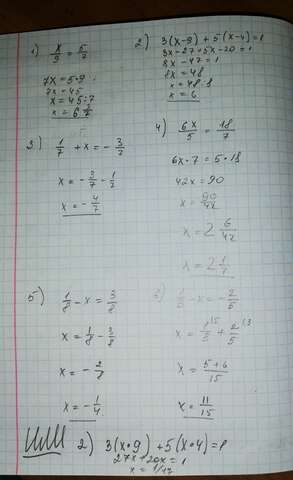 1) x/9 = 5/7
7x = 5·9
7x = 45
x = 45:7
x = 6 3/7
2) 3(x-9) + 5(x-4) = 1
3x-27+5x-20 = 1
8x-47 = 1
8x = 48
x = 48:8
x = 6
3) 1/7 + x = -3/7
x = -3/7 - 1/7
x = -4/7
4) 6x/5 = 18/7
6x·7 = 5·18
42x = 90
x = 90/42
x = 2 6/42
x = 2 1/7
5) 1/8 - x = 3/8
x = 1/8 - 3/8
x = -2/8
x = -1/4
6) 1/5 - x = -2/5
x = 5+6/15
x = 11/15
2) 3(x·9) + 5(x·4) = 1
27x+20x = 1
x = 1/47